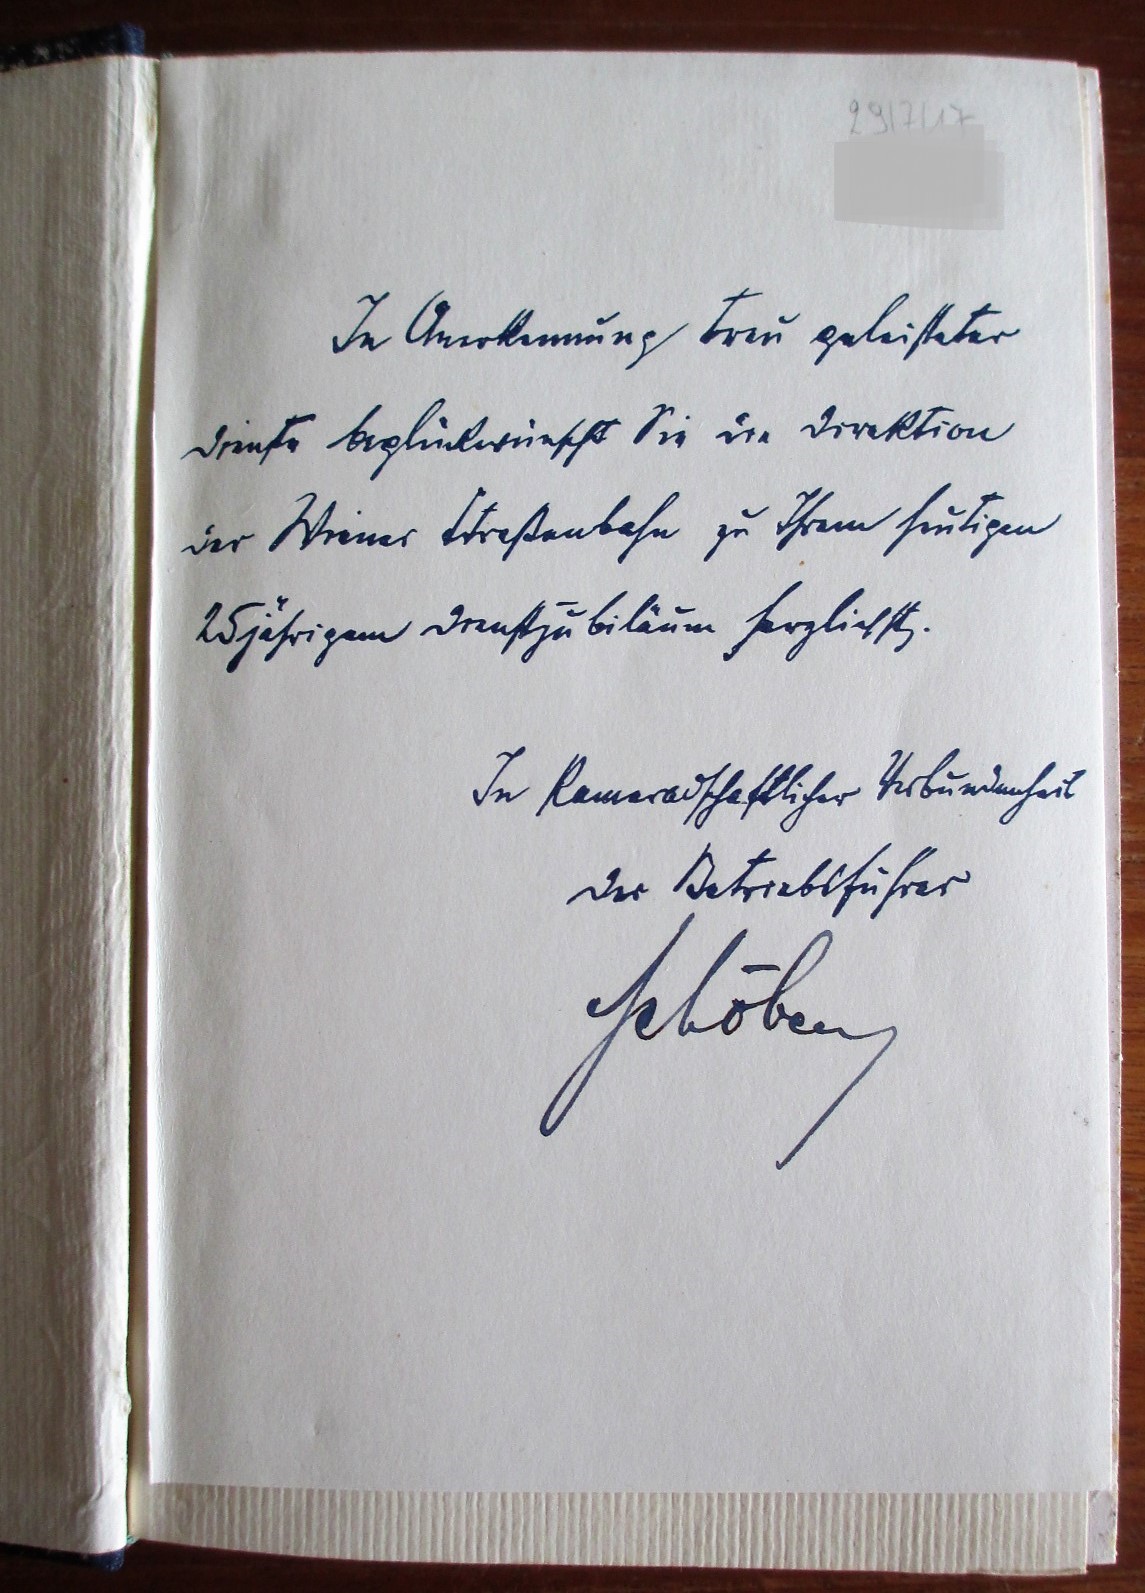 29/7/17
In Anerkennung treu geleisteter
Dienste beglückwünscht Sie die Direktion
der Wiener Straßenbahn zu Ihrem heutigen
25jährigem Dienstjubiläum herzlichst.
In kameradschaftlicher Verbundenheit
der Betriebsführer
Schöber